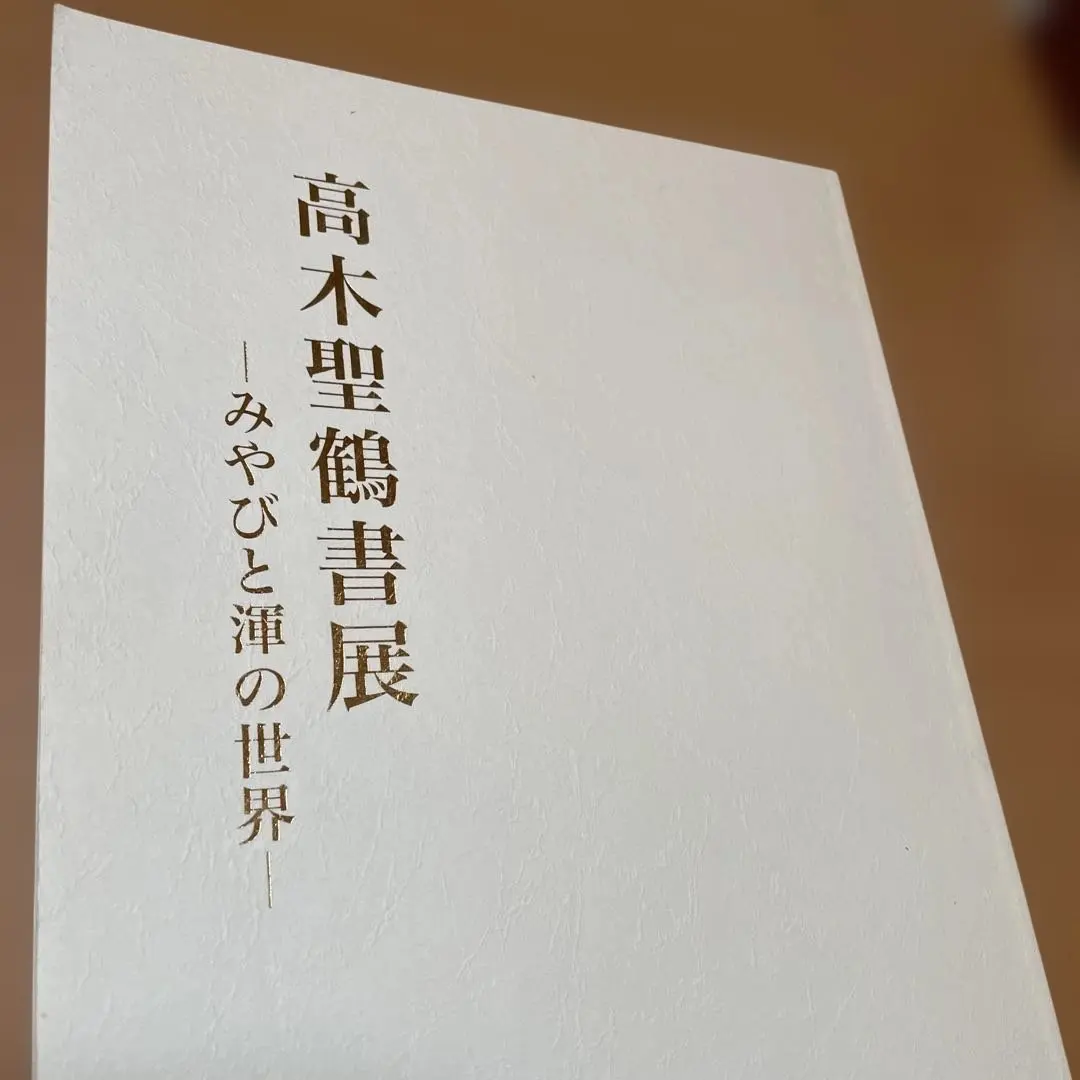 高木聖鶴書展
―みやびと渾の世界―